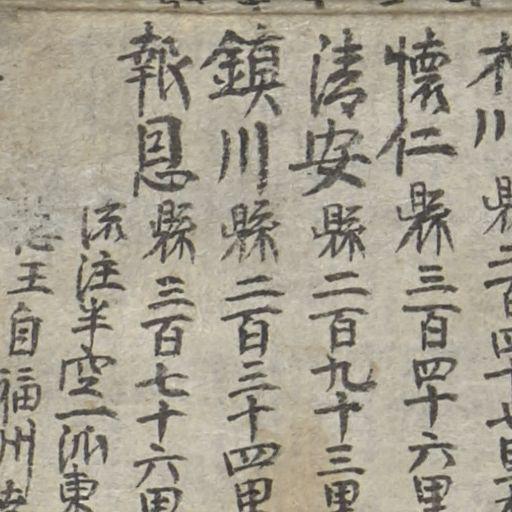 木川縣二百四十七里
懷仁縣三百四十六里
清安縣二百九十三里
鎮川縣二百三十四里
報恩縣三百七十六里
流注半空一派東
王自福州